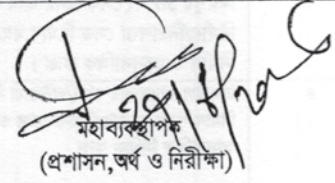 মহাব্যবস্থাপক
(প্রশাসন,অর্থ ও নিরীক্ষা)